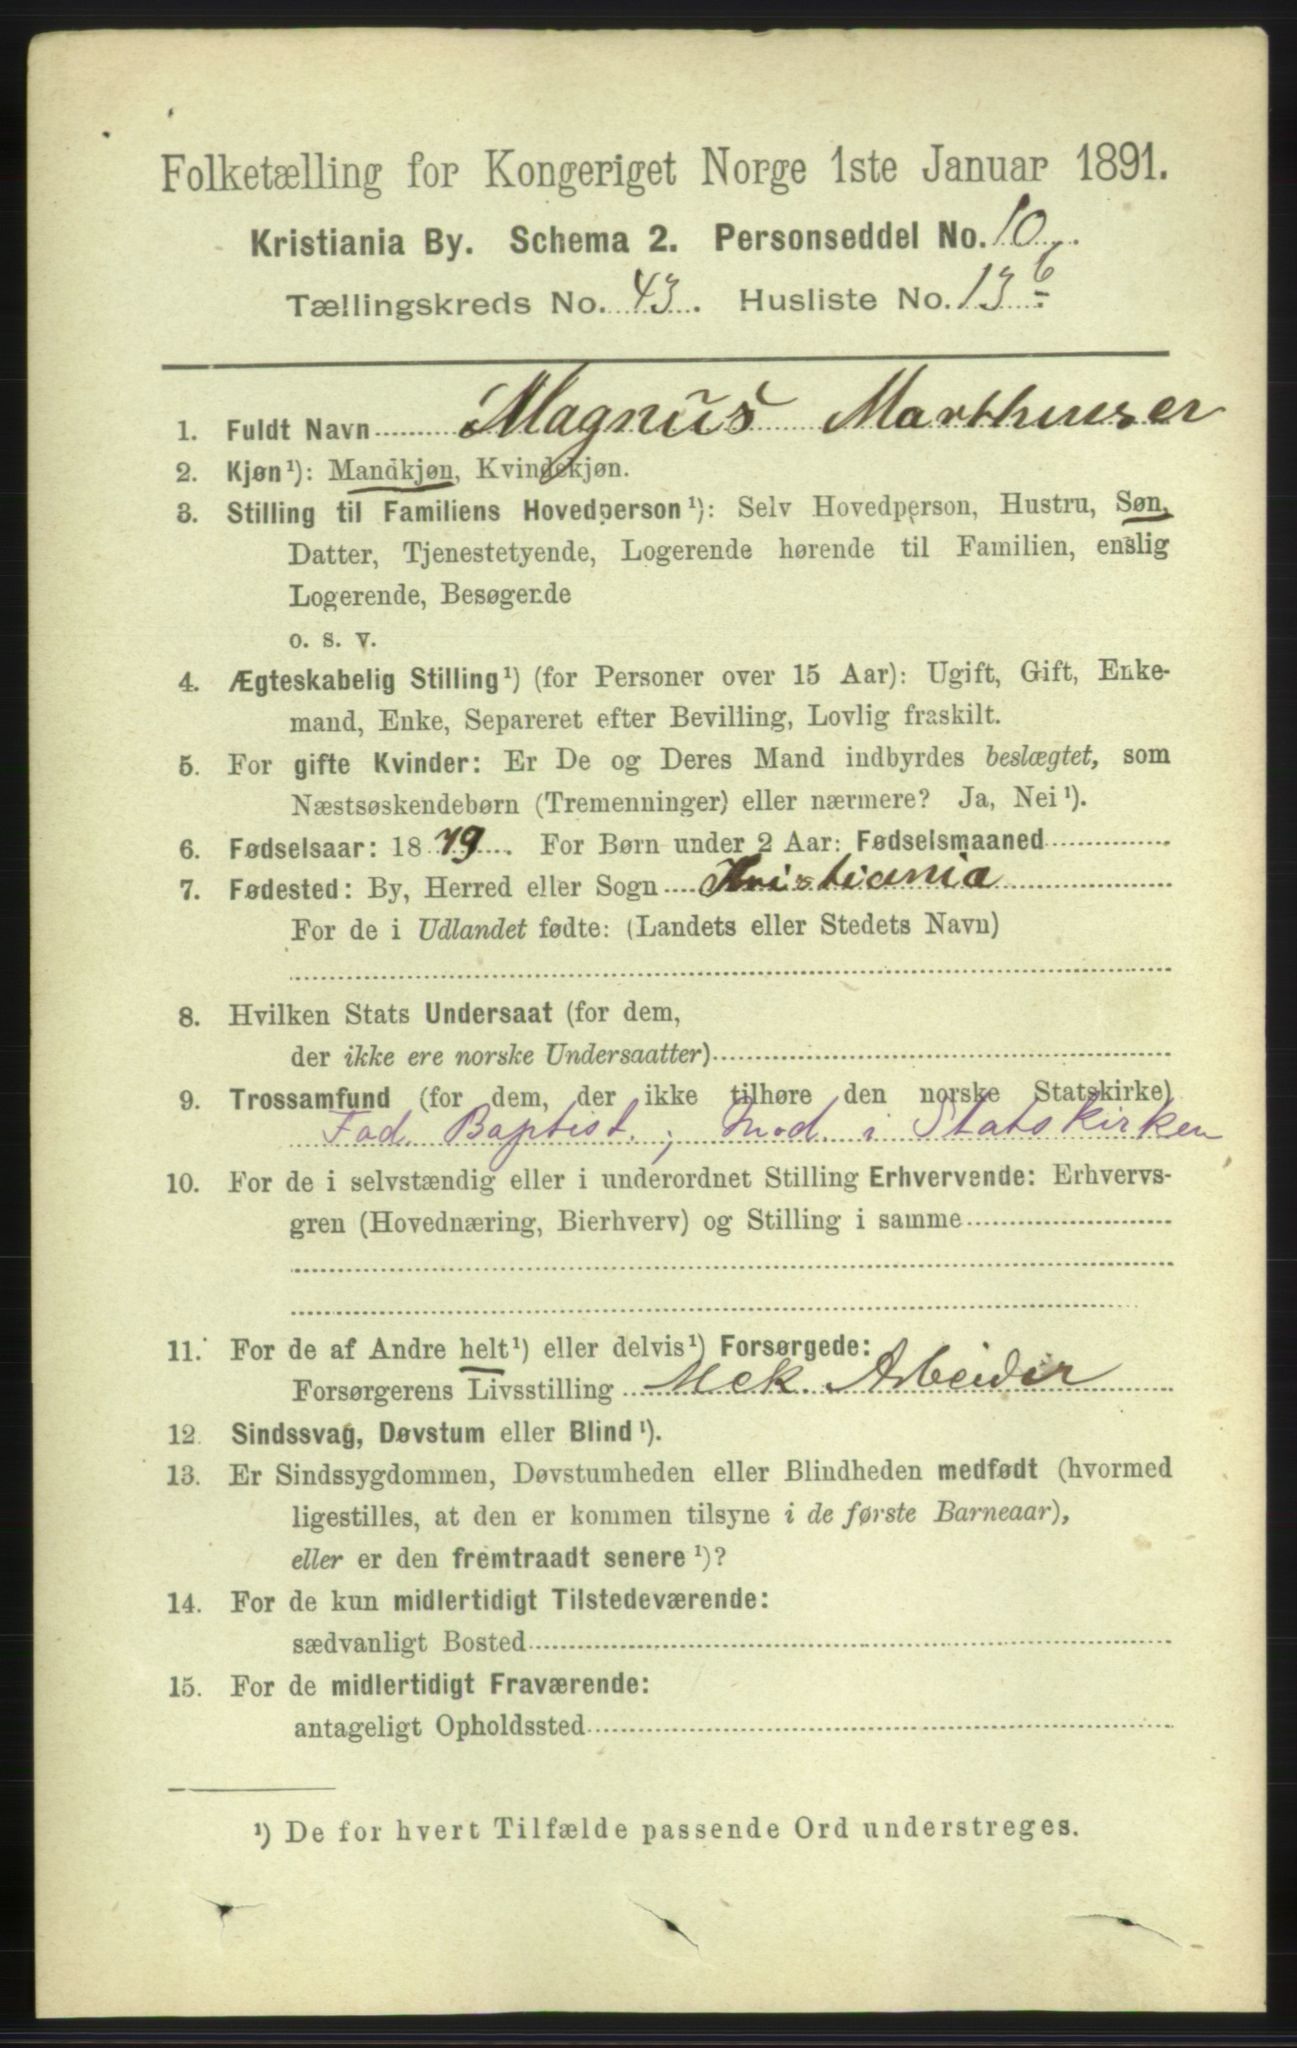 Folketælling for Kongeriget Norge 1ste Januar 1891.
Kristiania By. Schema 2. Personseddel No. 10
Tællingskreds No. 43. Husliste No. 13 b
1. Fuldt Navn Magnus Marthinsen
2. Kjøn¹): Mandkjøn, Kvindekjøn.
3. Stilling til Familiens Hovedperson¹): Selv Hovedperson, Hustru, Søn,
Datter, Tjenestetyende, Logerende hørende til Familien, enslig
Logerende, Besøgende
o. s. v.
4. Ægteskabelig Stilling¹) (for Personer over 15 Aar): Ugift, Gift, Enke-
mand, Enke, Separeret efter Bevilling, Lovlig fraskilt.
5. For gifte Kvinder: Er De og Deres Mand indbyrdes beslægtet, som
Næstsøskendebørn (Tremenninger) eller nærmere? Ja, Nei¹).
6. Fødselsaar: 1879. For Børn under 2 Aar: Fødselsmaaned
7. Fødested: By, Herred eller Sogn Kristiania
For de i Udlandet fødte: (Landets eller Stedets Navn)
8. Hvilken Stats Undersaat (for dem,
der ikke ere norske Undersaatter)
9. Trossamfund (for dem, der ikke tilhøre den norske Statskirke)
Fad. Baptist. ; Mod. i Statskirken
10. For de i selvstændig eller i underordnet Stilling Erhvervende: Erhvervs-
gren (Hovednæring, Bierhverv) og Stilling i samme
11. For de af Andre helt¹) eller delvis¹) Forsørgede:
Forsørgerens Livsstilling Mek. Arbeider
12. Sindssvag, Døvstum eller Blind¹).
13. Er Sindssygdommen, Døvstumheden eller Blindheden medfødt (hvormed
ligestilles, at den er kommen tilsyne i de første Barneaar),
eller er den fremtraadt senere¹)?
14. For de kun midlertidigt Tilstedeværende:
sædvanligt Bosted
15. For de midlertidigt Fraværende:
antageligt Opholdssted
¹) De for hvert Tilfælde passende Ord understreges.